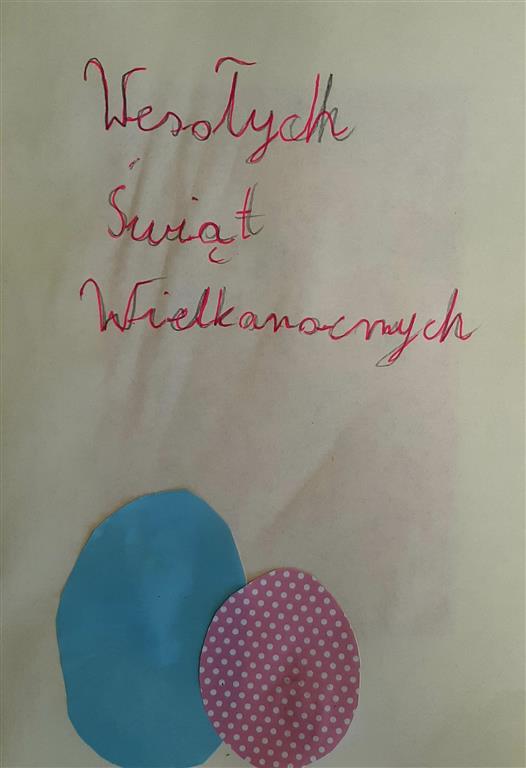 Wesołych
Świąt
Wielkanocnych